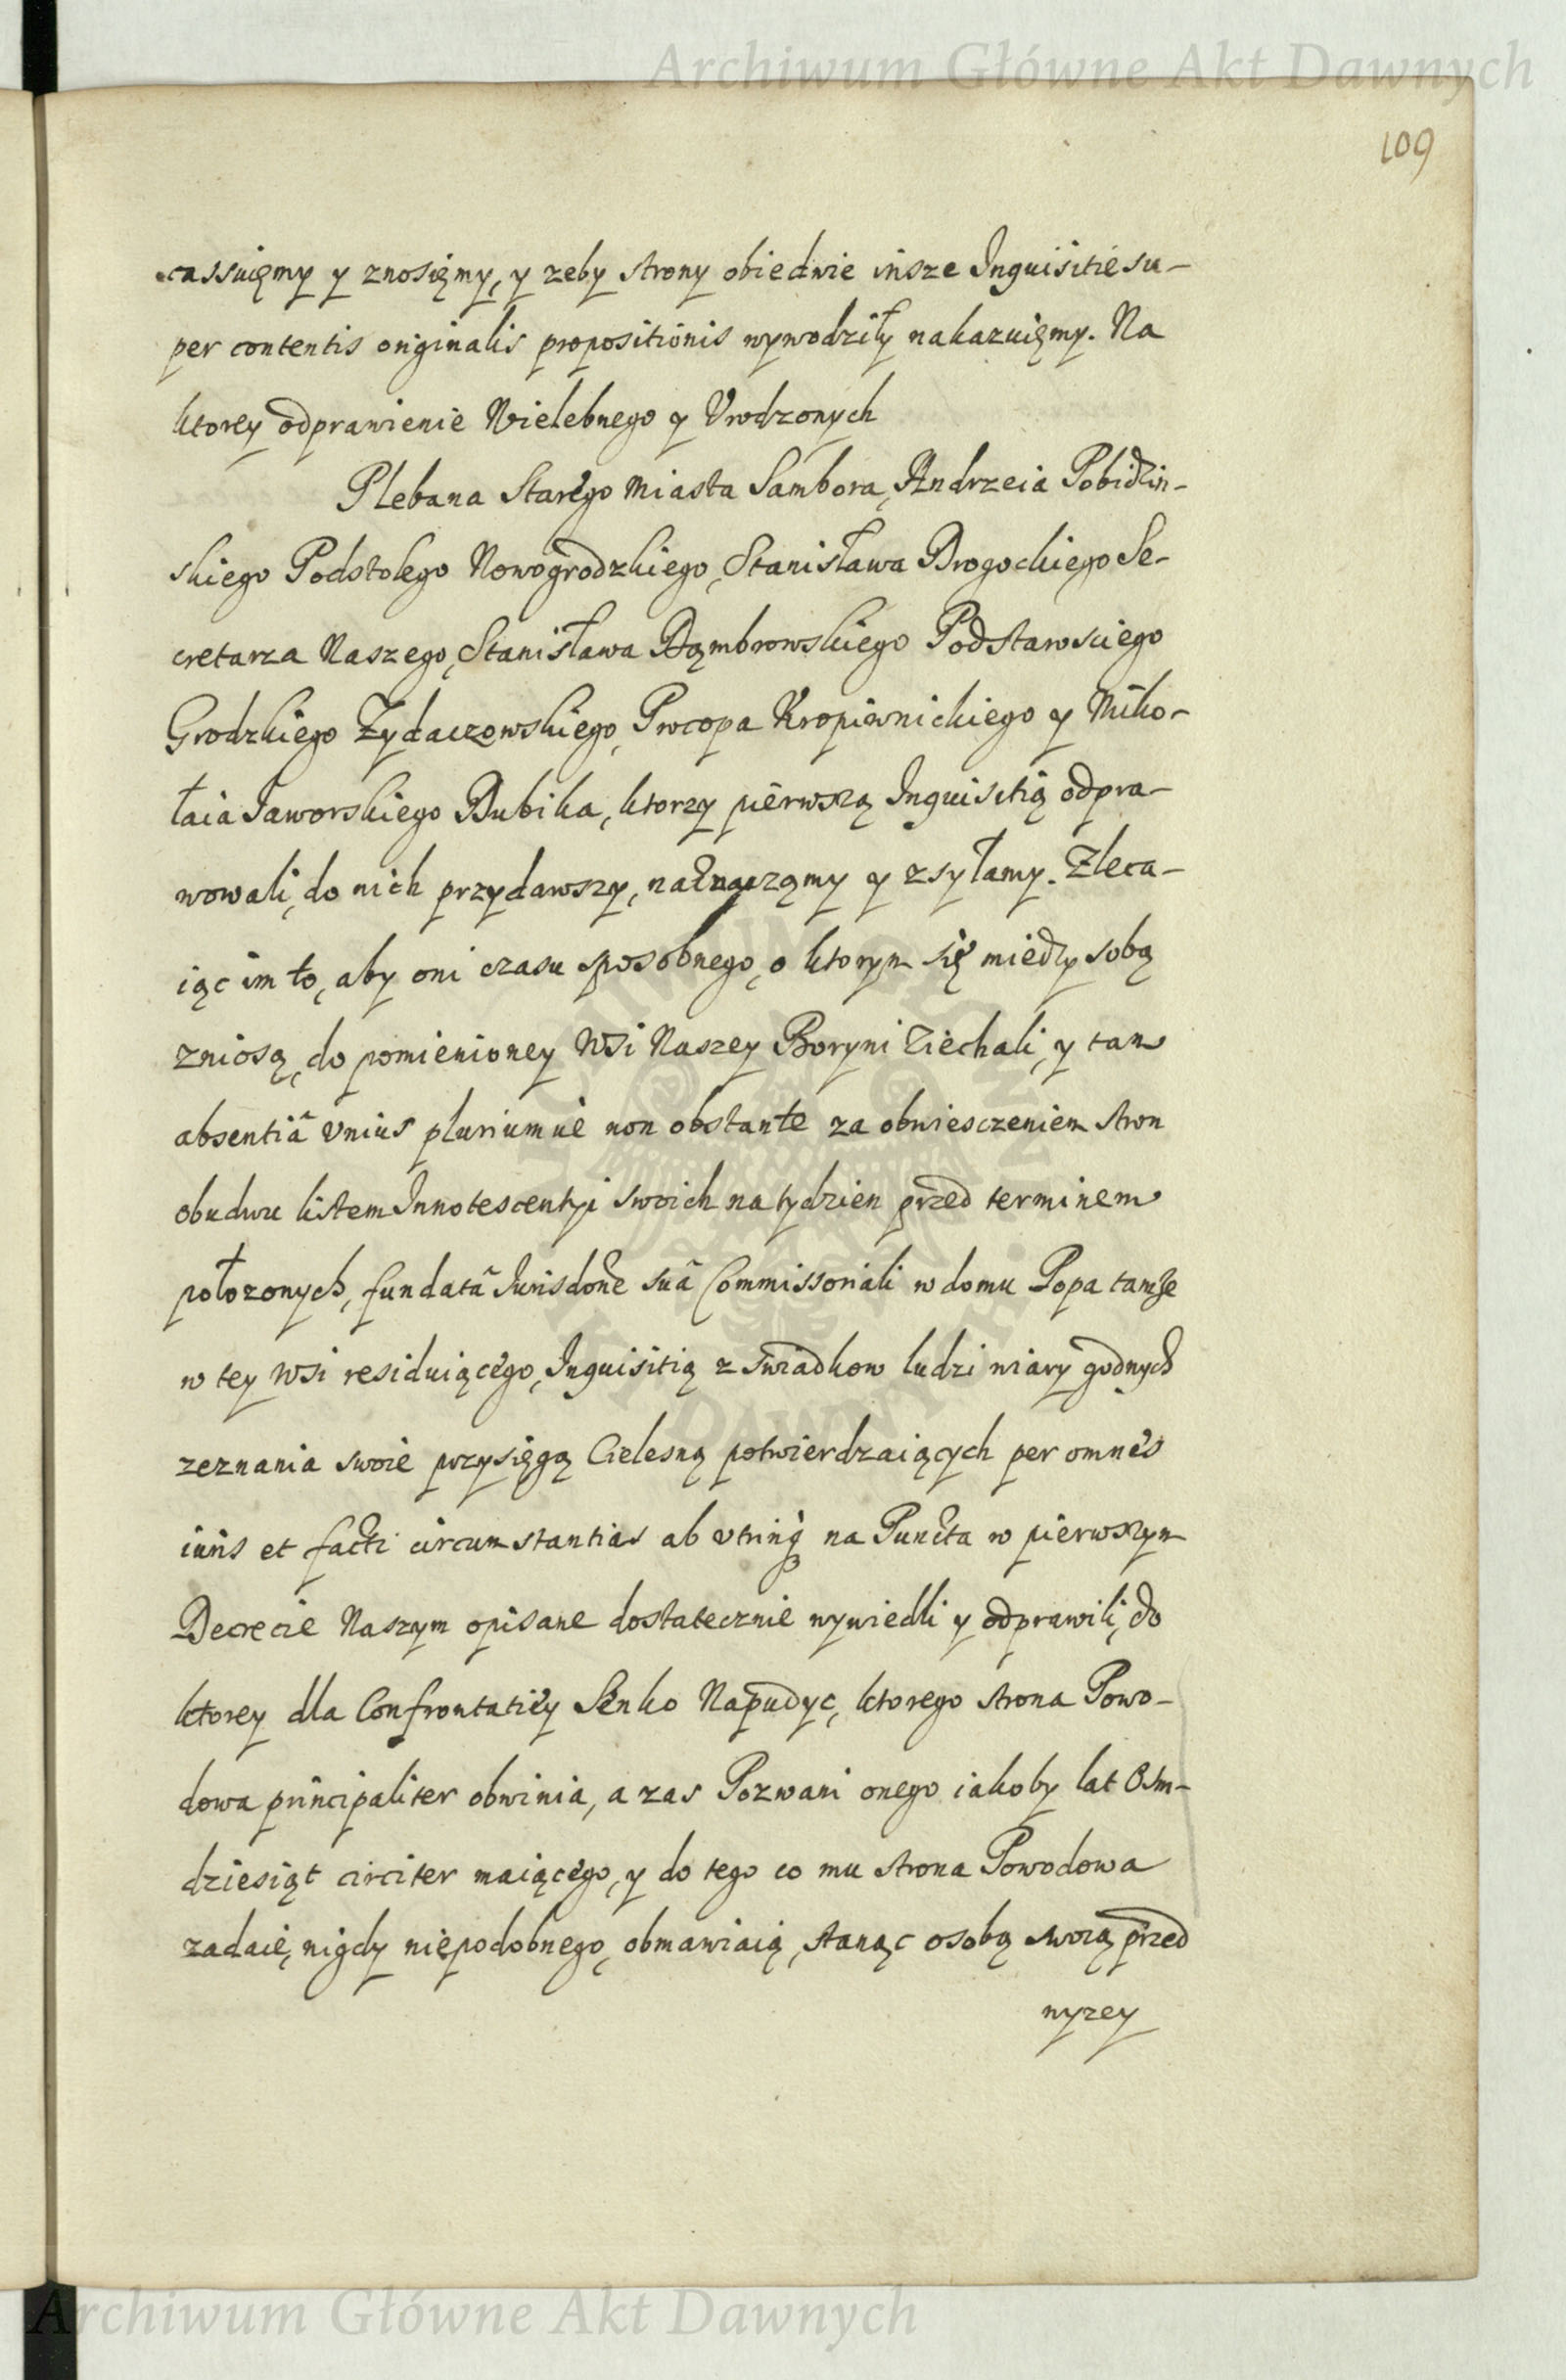 Archiwum Główne Akt Dawnych
109
cassuięmy y znosięmy, y zeby strony obiedwie insze Inquisitie su-
per contentis originalis propositionis wywodziły nakazuięmy. Na
ktorey odprawienie Wielebnego y Urodzonych
Plebana Starego Miasta Sambora, Andrzeia Pobidzin-
skiego Podstolego Nowogrodzkiego, Stanisława Brogockiego Se-
cretarza Naszego, Stanisława Dąmbrowskiego Podstarosciego
Grodzkiego Zydaczowskiego, Procopa Kropiwnickiego y Miko-
łaia Jaworskiego Bubika, ktorzy pierwszą Inquisitią odpra-
wowali, do nich przydawszy, naznaczamy y zsyłamy. Zleca-
iąc im to, aby oni czasu sposobnego, o ktorym się miedzy sobą
zniosą, do pomienioney Wsi Naszey Boryni Ziechali, y tam
absentiâ vnius pluriumue non obstante za obwiesczeniem stron
obudwu listem Innotescentyi swoich na tydzien przed terminem
połozonych, fundatâ Iurisdone suâ Commissoriali w domu Popa tamze
w tey Wsi residuiącego, Inquisitią z swiadkow ludzi wiary godnych
zeznania swoie przysięgą Cielesną potwierdzaiących per omnes
iuris et facti circumstantias ab vtrinq na Puncta w pierwszym
Decrecie Naszym opisane dostatecznie wywiedli y odprawili, do
ktorey dla Confrontatiey Senko Napudyc, ktorego strona Powo-
dowa principaliter obwinia, a zas Pozwani onego iakoby lat Osm-
dziesiąt circiter maiącego, y do tego co mu strona Powodowa
zadaie, nigdy niepodobnego, obmawiaią, stanąc osobą swoią przed
wyzey
Archiwum Główne Akt Dawnych